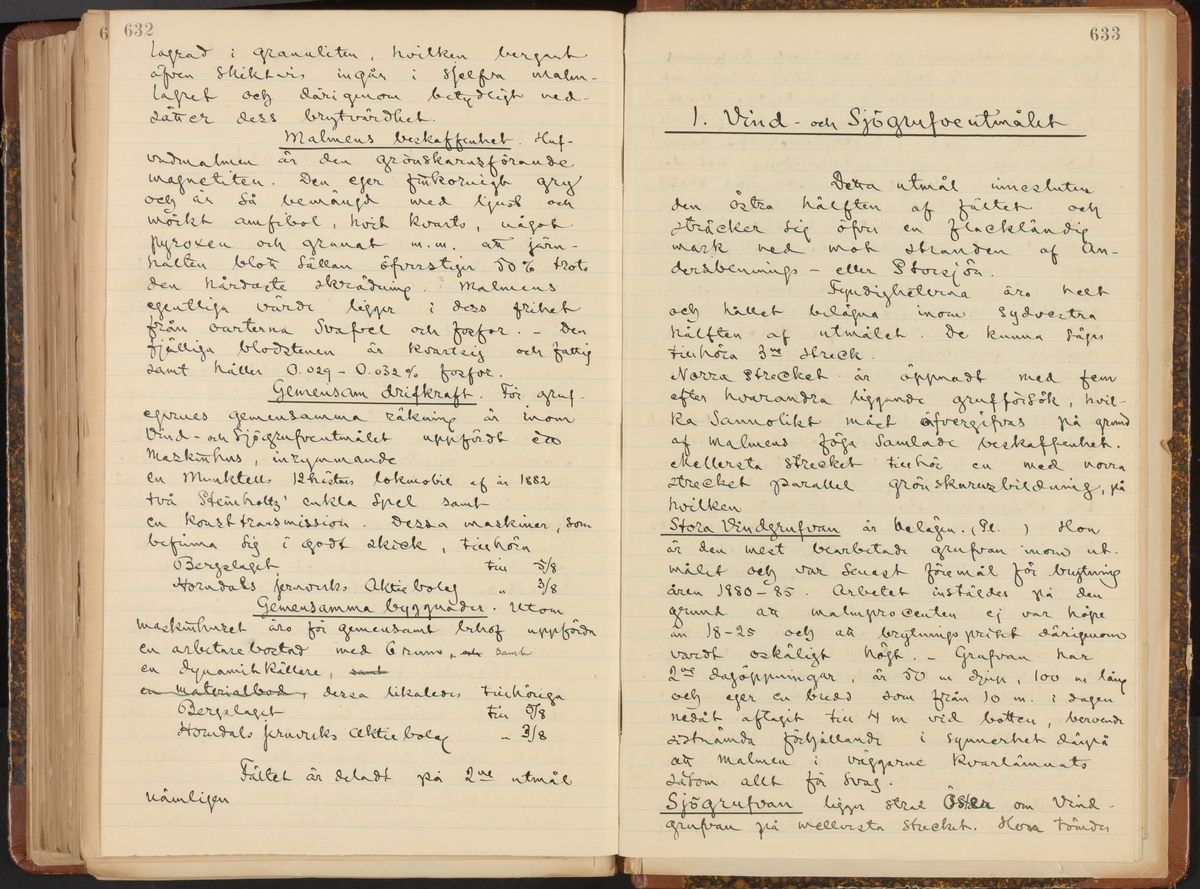 632
lagrad i granuliten, hvilken bergart
äfven skiktvis ingår i sjelfva malm-
lagret och därigenom betydligt ned-
sätter dess brytvärdhet.
Malmens beskaffenhet. Huf-
vudmalmen är den grönskarnsförande
magnetiten. Den eger finkornigt gry
och är så bemängd med ljust och
mörkt amfibol, hvit kvarts, något
pyroxen och granat m.m. att järn-
halten blott sällan öfverstiger 50% trots
den hårdaste skrädning. Malmens
egentliga värde ligger i dess frihet
från arterna Svafvel och fosfor. – Den
fjälliga blodstenen är kvartsig och fattig
samt håller 0.029 – 0.032% fosfor.
Gemensam drifkraft. För gruf-
egarnes gemensamma räkning är inom
Vind- och Sjögrufveutmålet uppfördt ett
Maskinhus, inrymmande
en Munktells 12 hästars lokmobil af år 1882
två Steinholtz' enkla Spel samt
en konsttransmission. Dessa maskiner, som
befinna sig i godt skick, tillhöra
Bergslaget till 5/8
Horndals jernverks Aktiebolag " 3/8
Gemensamma byggnader. Utom
maskinhuset äro för gemensamt behof uppförda
en arbetarebostad med 6 rum, och samt
en dynamitkällare, samt
en materialbod, dessa likaledes tillhöriga
Bergslaget till 5/8
Horndals jernverks Aktiebolag " 3/8
Fältet är deladt på 2ne utmål
nämligen
633
1. Vind- och Sjögrufveutmålet
Detta utmål innesluter
den östra hälften af fältet och
sträcker sig öfver en flackländig
mark ned mot stranden af An-
dersbennings – eller Storsjön.
Fyndigheterna äro helt
och hållet belägna inom sydvestra
hälften af utmålet. De kunna sägas
tillhöra 3ne streck.
Norra strecket är öppnadt med fem
efter hvarandra liggande grufförsök, hvil-
ka sannolikt måst öfvergifvas på grund
af malmens föga samlade beskaffenhet.
Mellersta strecket tillhör en med norra
strecket parallel grönskarnsbildning, på
hvilken
Stora Vindgrufvan är belägen. (Pl. ) Hon
är den mest bearbetade grufvan inom ut-
målet och var senast föremål för brytning
åren 1880–85. Arbetet inställdes på den
grund att malmprocenten ej var högre
än 18–25 och att brytningspriset därigenom
vardt oskäligt högt. – Grufvan har
2ne dagöppningar, är 50 m djup, 100 m lång
och eger en bredd som från 10 m. i dagen
nedåt aftagit till 4 m vid botten, beroende
sistnämda förhållande i synnerhet därpå
att malmen i väggarne kvarlämnats
såsom allt för svag.
Sjögrufvan ligger strax öster om Vind-
grufvan på mellersta strecket. Hon tömdes